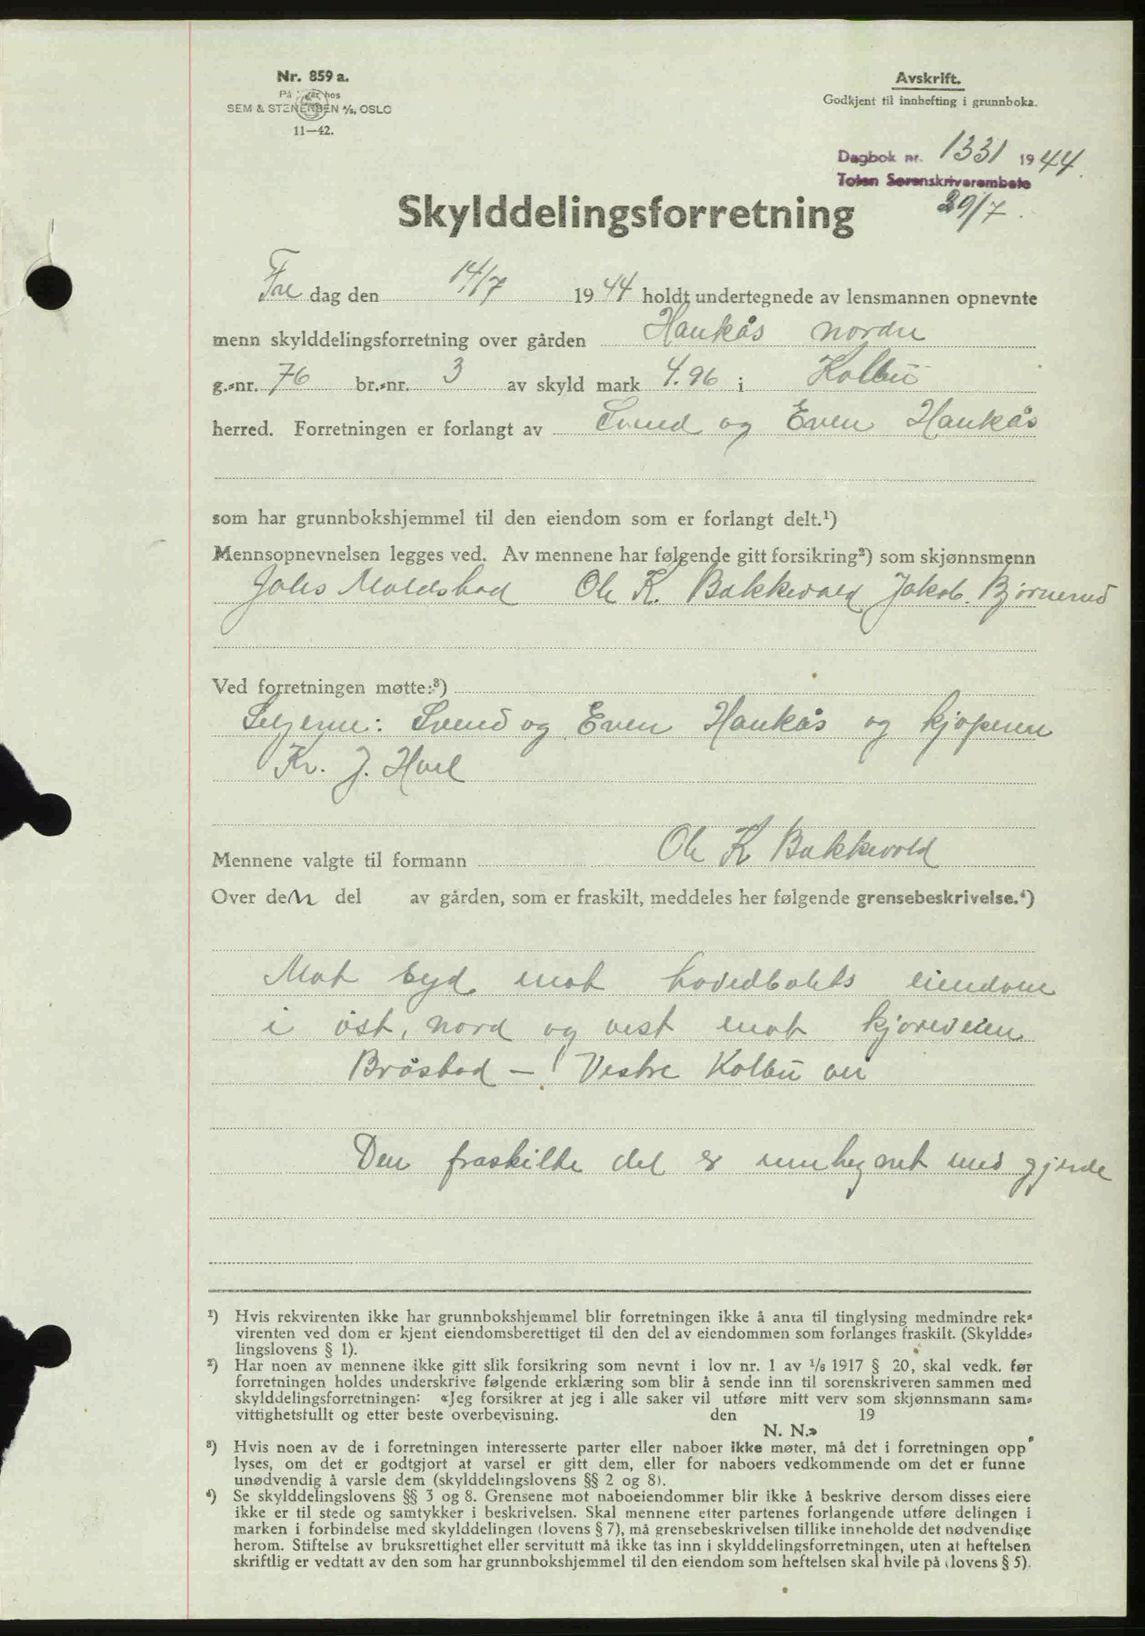 Nr. 859 a.
På lager hos
SEM & STENERSEN A/S, OSLO
11—42.
Avskrift.
Godkjent til innhefting i grunnboka.
Dagbok nr. 1331 1944.
Toten Sorenskriverembete
29/7.
Skylddelingsforretning
Fre dag den 14/7 1944 holdt undertegnede av lensmannen opnevnte
menn skylddelingsforretning over gården Haukås nordre
g.-nr. 76 br.-nr. 3 av skyld mark 4.96 i Kolbu
herred. Forretningen er forlangt av Svend og Even Haukås
som har grunnbokshjemmel til den eiendom som er forlangt delt.¹)
Mennsopnevnelsen legges ved. Av mennene har følgende gitt forsikring²) som skjønnsmenn
Johs Moldstad Ole K. Bakkevold Jakob. Bjørnerud
Ved forretningen møtte:³)
Selgerne: Svend og Even Haukås og kjøperen
Kr. J. Hoel
Mennene valgte til formann Ole K Bakkevold
Over den del av gården, som er fraskilt, meddeles her følgende grensebeskrivelse.⁴)
Mot syd mot hovedbølets eiendom
i øst, nord og vest mot kjøreveien
Bråstad – Vestre Kolbu vei
Den fraskilte del er innhegnet med gjerde
¹) Hvis rekvirenten ikke har grunnbokshjemmel blir forretningen ikke å anta til tinglysing medmindre rek-
virenten ved dom er kjent eiendomsberettiget til den del av eiendommen som forlanges fraskilt. (Skyldde-
lingslovens § 1).
²) Har noen av mennene ikke gitt slik forsikring som nevnt i lov nr. 1 av 1/8 1917 § 20, skal vedk. før
forretningen holdes underskrive følgende erklæring som blir å sende inn til sorenskriveren sammen med
skylddelingsforretningen: «Jeg forsikrer at jeg i alle saker vil utføre mitt verv som skjønnsmann sam-
vittighetsfullt og etter beste overbevisning. den 19
N. N.»
³) Hvis noen av de i forretningen interesserte parter eller naboer ikke møter, må det i forretningen opp
lyses, om det er godtgjort at varsel er gitt dem, eller for naboers vedkommende om det er funne
unødvendig å varsle dem (skylddelingslovens §§ 2 og 8).
⁴) Se skylddelingslovens §§ 3 og 8. Grensene mot naboeiendommer blir ikke å beskrive dersom disses eiere
ikke er til stede og samtykker i beskrivelsen. Skal mennene etter partenes forlangende utføre delingen i
marken i forbindelse med skylddelingen (lovens § 7), må grensebeskrivelsen tillike inneholde det nødvendige
herom. Stiftelse av bruksrettighet eller servitutt må ikke tas inn i skylddelingsforretningen, uten at heftelsen
skriftlig er vedtatt av den som har grunnbokshjemmel til den eiendom som heftelsen skal hvile på (lovens § 5).